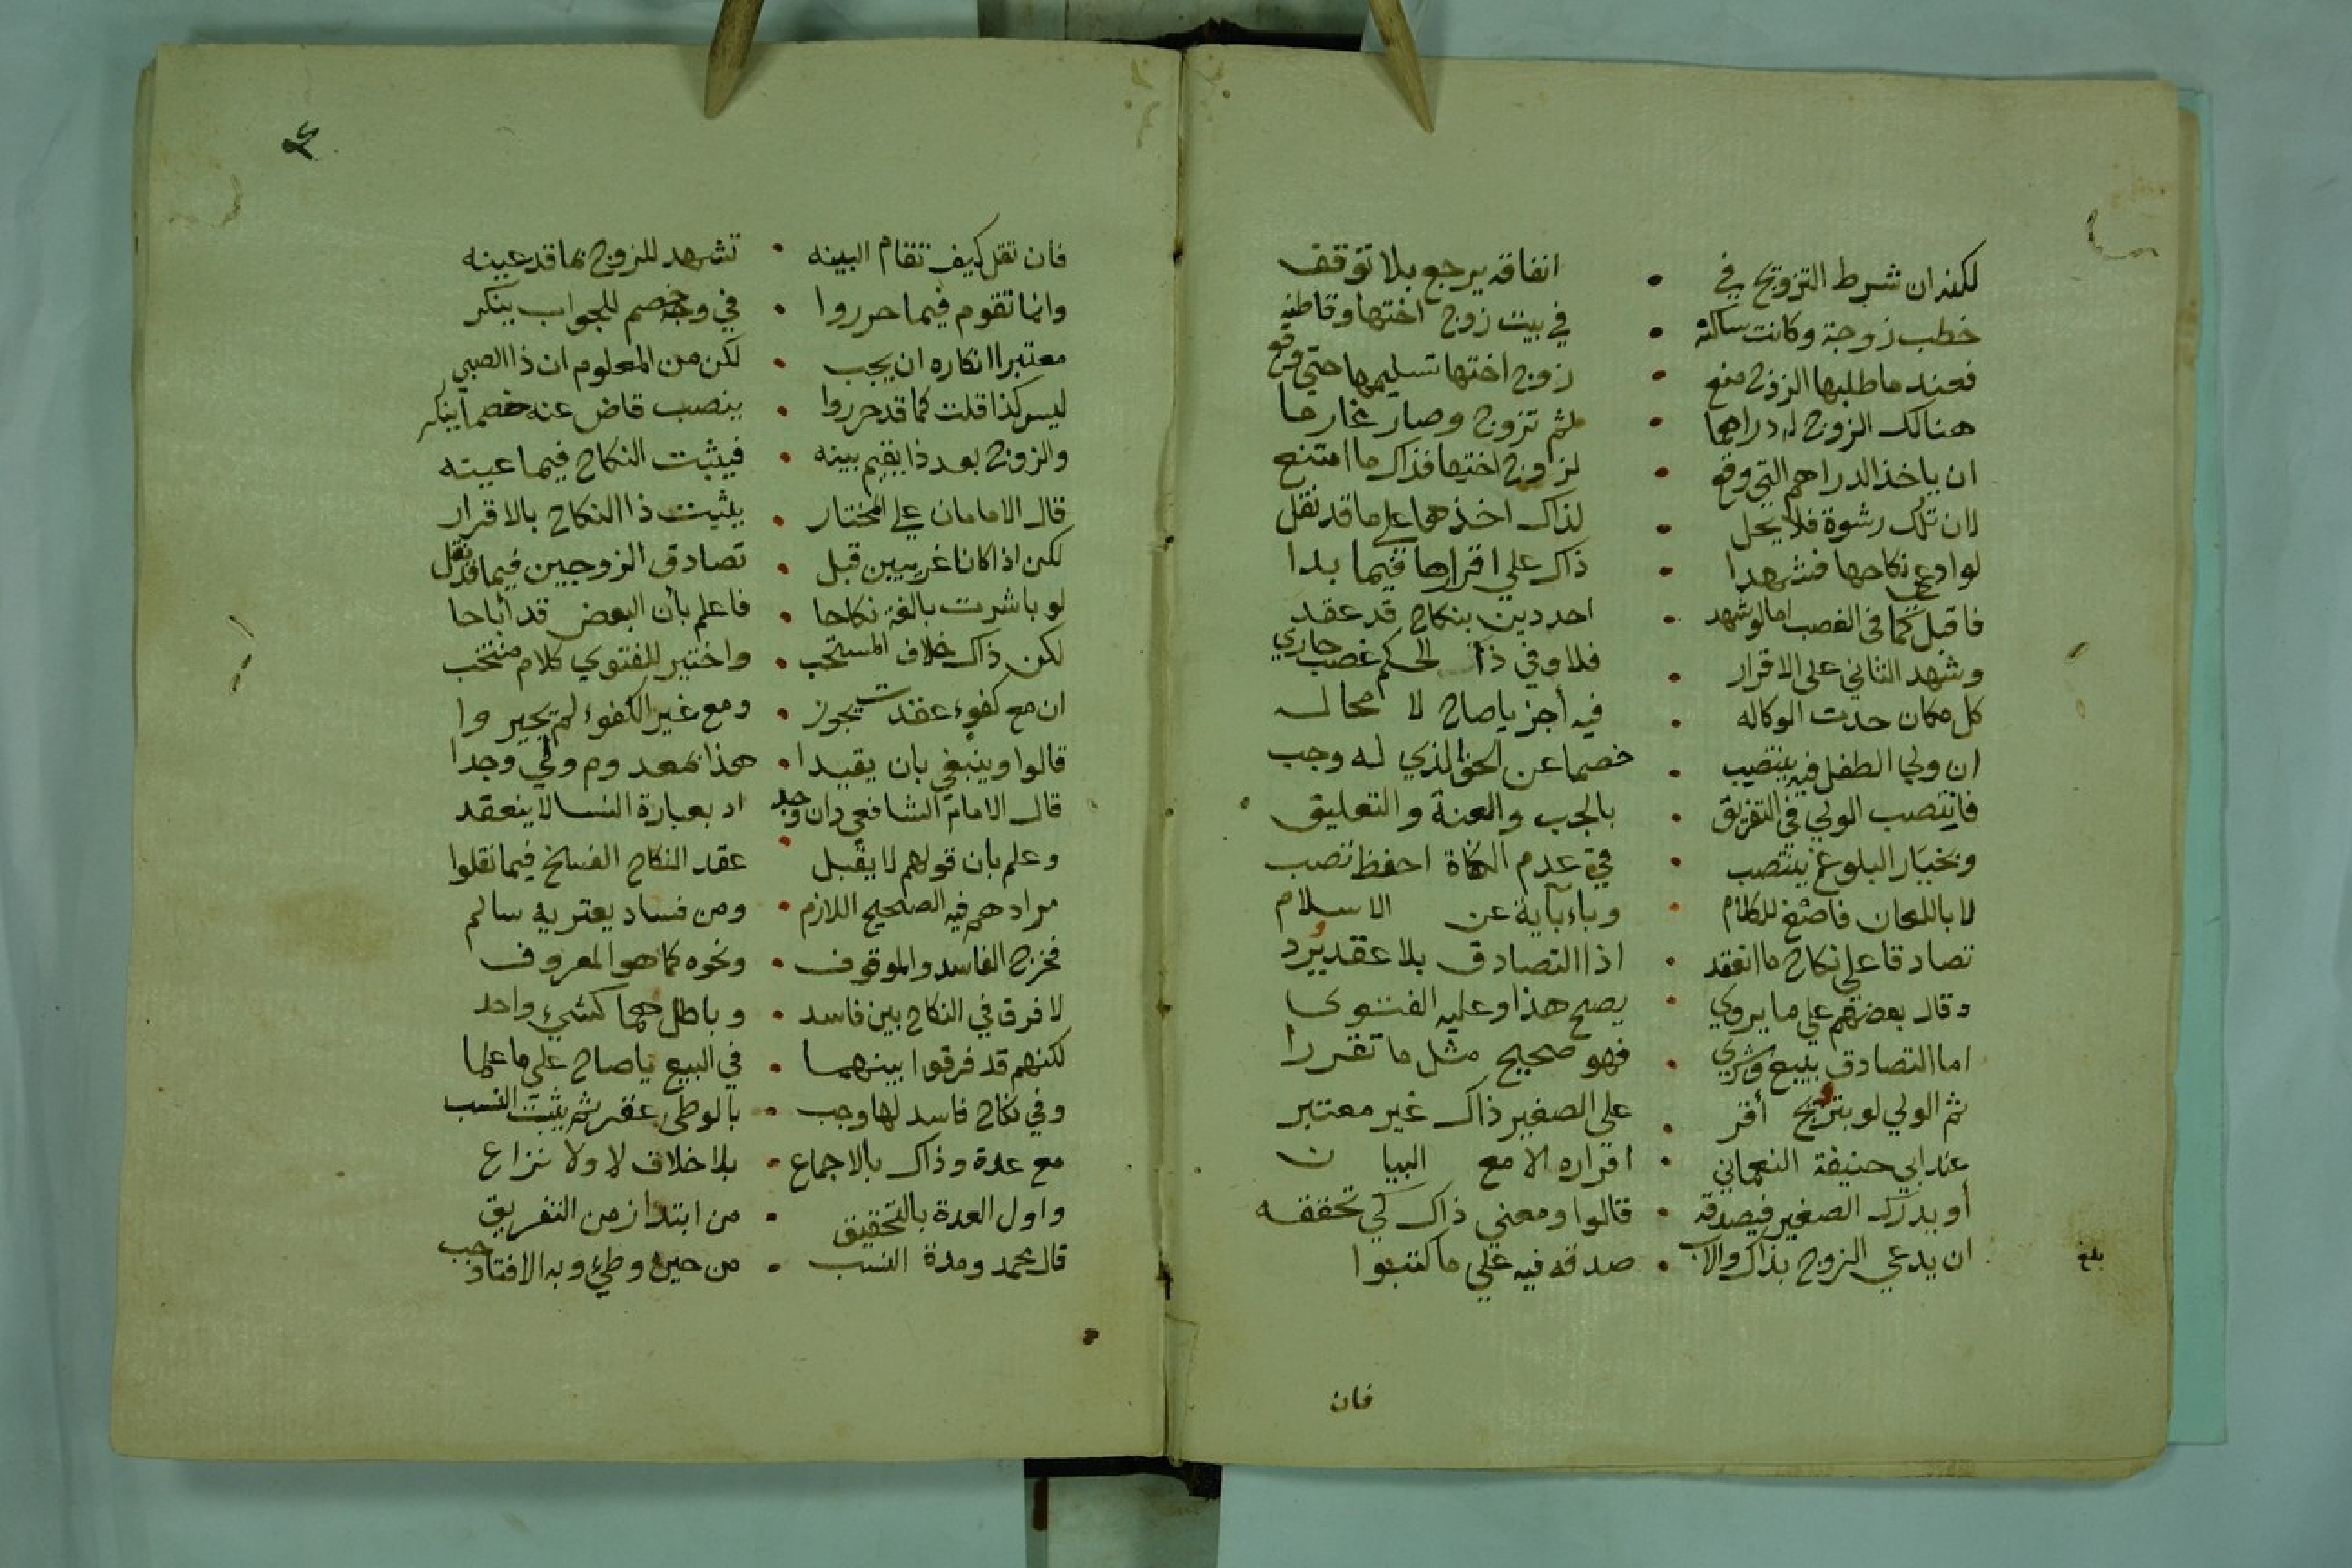 لكنه ان شرط التزويج في • انفاقه يرجع بلا توقف
خطب زوجة وكانت ساكنه • في بيت زوج اختها وقاطنه
فعند ما طلبها الزوج منع • زوج اختها تسليمها حتي وقع
هنالك الزوج له دراهما • ثم تزوج وصار غارما
ان ياخذ الدراهم التي وقع • لزوج اختها فذاك ما امتنع
لان تلك رشوة فلا يحل • لذاك اخذها علي ما قد نقل
لو ادعي نكاحها فشهدا • ذاك علي اقرارها فيما بدا
فاقبل كما في الغصب اما لو شهد • احد دين بنكاح قد عقد
وشهد الثاني على الاقرار • فلا وفي ذا الحكم غصب جاري
كل مكان حدت الوكاله • فيه أجز ياصاح لا محاله
ان ولي الطفل فيه ينتصب • خصما عن الحق الذي له وجب
فانتصب الولي في التفريق • بالجب والعنة والتعليق
وبخيار البلوغ ينتصب • في عدم الكفاة احفظ تصب
لا باللعان فاصغ للكلام • وباءبآية عن الاسلام
تصادقا على نكاح ما انعقد • اذ التصادق بلا عقد يرد
وقال بعضهم علي ما يروي • يصح هذا وعليه الفتوى
اما التصادق ببيع وشري • فهو صحيح مثل ما تقررا
ثم الولي لو بتزويج أقر • على الصغير ذاك غير معتبر
عند ابي حنيفة النعماني • اقراره الا مع البيان
أو يدرك الصغير فيصدقه • قالوا ومعني ذاك كي تحققه
ان يدعي الزوج بذاك والاب • صدقه فيه علي ما كتبوا
بلغ
فان
فان تقل كيف تقام البينه • تشهد للزوج بما قد عينه
وانما تقوم فيما حرروا • في وجه خصم للجواب ينكر
معتبرا انكاره ان يجب • لكن من المعلوم ان ذا الصبي
ليس كذا قلت كما قد حرروا • ينصب قاض عنه خصما ينكر
والزوج بعد ذا يقيم بينه • فيثبت النكاح فيما عينه
قال الامامان علي المختار • يثبت ذا النكاح بالاقرار
لكن اذا كانا غريبين قبل • تصادق الزوجين فيما قد نقل
لو باشرت بالغة نكاحا • فاعلم بأن البعض قد أباحا
لكن ذاك خلاف المستحب • واختير للفتوي كلام منتخب
ان مع كفوء عقدت يجوز • ومع غير الكفوء لم يجيزوا
قالوا وينبغي بان يقيدا • هذا بمعدوم ولي وجدا
قال الامام الشافعي وان وجد • اد بعبارة النسا لا ينعقد
وعلم بان قولهم لا يقبل • عقد النكاح الفسخ فيما نقلوا
مرادهم فيه الصحيح اللازم • ومن فساد يعتريه سالم
فخرج الفاسد والموقوف • ونحوه كما هو المعروف
لا فرق في النكاح بين فاسد • وباطل هما كشيء واحد
لكنهم قد فرقوا بينهما • في البيع ياصاح علي ما علما
وفي نكاح فاسد لها وجب • بالوطي عقر ثم يثبت النسب
مع عدة وذاك بالاجماع • بلا خلاف لا ولا نزاع
واول العدة بالتحقيق • من ابتدا زمن التفريق
قال محمد ومدة النسب • من حين وطئ وبه الافتا وجب